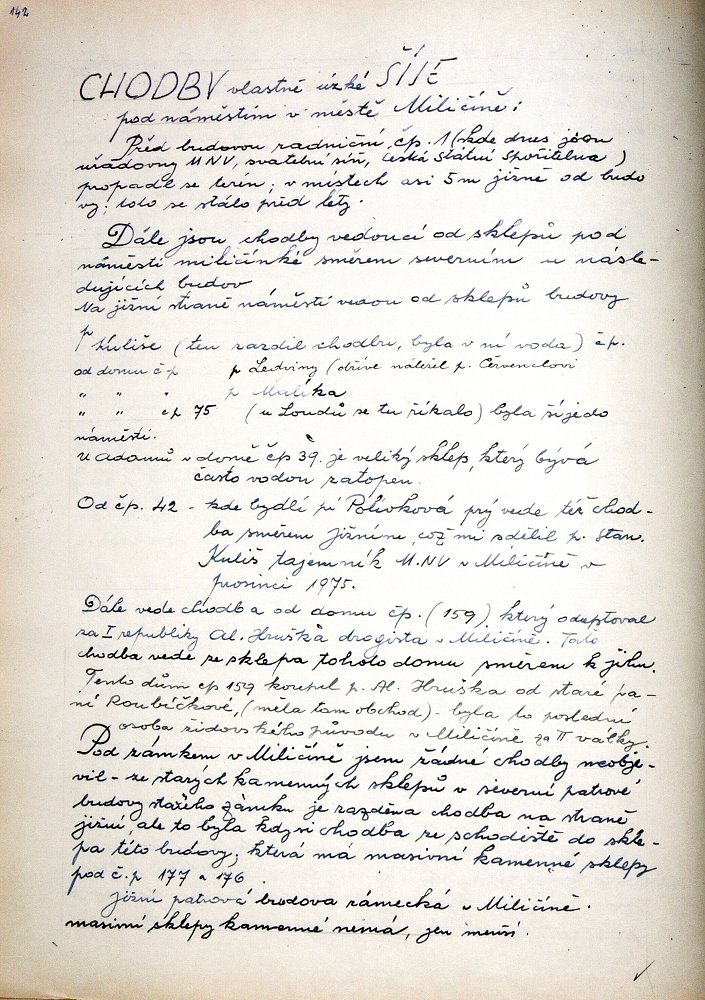 142
CHODBY vlastně úzké ŠÍJE
pod náměstím v městě Miličíně:
Před budovou radniční čp. 1 (kde dnes jsou
uřadovny MNV, svatební síň, Česká státní spořitelna)
propadl se terén; v místech asi 5m jižně od budo
vy; toto se stálo před léty.
Dále jsou chodby vedoucí od sklepů pod
náměstí miličínké směrem severním u násle-
dujících budov
Na jižní straně náměstí vedou od sklepů budovy
p Kuliše (ten zazdil chodbu, byla v ní voda) čp.
od domu čp p Ledviny (dříve náležel p. Červenclovi
" " " p Malíka
" " čp 75 (u Loudů se tu říkalo) byla šíje do
náměstí.
U Adamů v domě čp 39. je veliký sklep, který bývá
často vodou zatopen.
Od čp. 42 - kde bydlí pí Polívková prý vede též chod-
ba směrem jižním, což mi sdělil p. Stan.
Kuliš tajemník M.NV v Miličíně v
prosinci 1975.
Dále vede chodba od domu čp. (159), který adaptoval
za I republiky Al. Hruška drogista v Miličíně. Tato
chodba vede ze sklepa tohoto domu směrem k jihu.
Tento dům čp 159 koupil p. Al. Hruška od staré pa-
ní Roubíčkové, (měla tam obchod) - byla to poslední
osoba židovského původu v Miličíně za II války.
Pod zámkem v Miličíně jsem žádné chodby neobje-
vil - ze starých kamenných sklepů v severní patrové
budovy starého zámku je zazděna chodba na straně
jižní, ale to byla kdysi chodba ze schodiště do skle-
pa této budovy; která má masivní kamenné sklepy
pod č.p 177 a 176.
jižní patrová budova zámecká v Miličíně.
masivní sklepy kamenné nemá, jen menší.